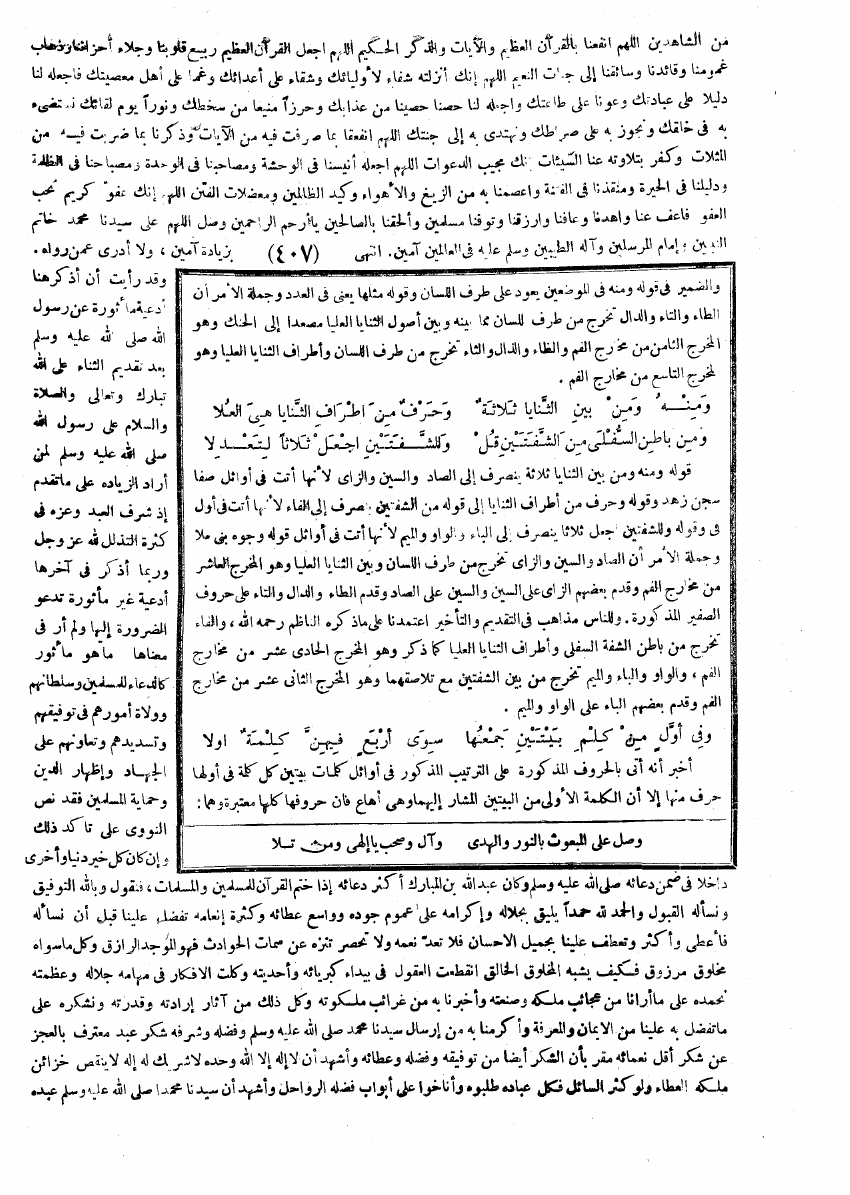 من الشاهدين اللهم انفعنا بالقرآن العظيم والآيات والذكر الحكيم اللهم اجعل القرآن العظيم ربيع قلوبنا وجلاء أحزاننا وذهاب
غمومنا وقائدنا وسائقنا إلى جنات النعيم اللهم إنك أنزلته شفاء لأوليائك وشقاء على أعدائك وغما على أهل معصيتك فاجعله لنا
دليلا على عبادتك وعونا على طاعتك واجعله لنا حصنا حصينا من عذابك وحرزاً منيعا من سخطك ونوراً يوم لقائك نستضىء
به فى خلقك ونجوز به على صراطك ونهتدى به إلى جنتك اللهم انفعنا بما صرفت فيه من الآيات وذكرنا بما ضربت فيه من
المثلات وكفر بتلاوته عنا السيئات إنك مجيب الدعوات اللهم اجعله أنيسنا فى الوحشة ومصاحبنا فى الوحدة ومصباحنا فى الظلمة
ودليلنا فى الحيرة ومنقذنا فى الفتنة واعصمنا به من الزيغ والأهواء وكيد الظالمين ومعضلات الفتن اللهم إنك عفو كريم تحب
العفو فاعف عنا واهدنا وعافنا وارزقنا وتوفنا مسلمين وألحقنا بالصالحين ياأرحم الراحمين وصل اللهم على سيدنا محمد خاتم
النبيين وإمام المرسلين وآله الطيبين وسلم عليه فى العالمين آمين. انتهى (٤٠٧) بزيادة آمين ، ولا أدرى عمن رواه.
وقد رأيت أن أذكر هنا
أدعية مأثورة عن رسول
الله صلى الله عليه وسلم
بعد تقديم الثناء على الله
تبارك وتعالى والصلاة
والسلام على رسول الله
صلى الله عليه وسلم لمن
أراد الزياده على ماتقدم
إذ شرف العبد وعزه فى
كثرة التذلل لله عز وجل
وربما أذكر فى آخرها
أدعية غير مأثورة تدعو
الضرورة إليها ولم أر فى
معناها ماهو مأثور
كالدعاء للمسلمين وسلطانهم
وولاة أمورهم فى توفيقهم
وتسديدهم وتعاونهم على
الجهاد وإظهار الدين
وحماية المسلمين فقد نص
النووى على تأكد ذلك
وإن كان كل خير دنيا وأخرى
والضمير فى قوله ومنه فى الموضعين يعود على طرف اللسان وقوله مثلها يعنى فى العدد وجملة الأمر أن
الطاء والتاء والدال تخرج من طرف للسان مما بينه وبين أصول الثنايا العليا مصعدا إلى الحنك وهو
المخرج الثامن من مخارج الفم والظاء والذال والثاء تخرج من طرف اللسان وأطراف الثنايا العليا وهو
المخرج التاسع من مخارج الفم .
وَمِنْهُ وَمِنْ بَيْنِ الثَّنَايَا ثَلاَثَةٌ وَحَرْفٌ مِنَ اطْرَافِ الثَّنَايَا هِىَ الْعُلاَ
وَمِن بَاطِنِ السُّفْلَى مِنَ الشَّفَتَيْنِ قُلْ وَلِلشَّفَتَيْنِ اجْعَلْ ثَلاَثاً لِتَعْدِلا
قوله ومنه ومن بين الثنايا ثلاثة ينصرف إلى الصاد والسين والزاى لأنها أتت فى أوائل صفا
سجن زهد وقوله وحرف من أطراف الثنايا إلى قوله من الشفتين ينصرف إلى الفاء لأنها أتت فى أول
فى وقوله وللشفتين اجعل ثلاثا ينصرف إلى الباء والواو والميم لأنها أتت فى أوائل قوله وجوه بنى ملا
وجملة الأمر أن الصاد والسين والزاى تخرج من طرف اللسان وبين الثنايا العليا وهو المخرج العاشر
من مخارج الفم وقدم بعضهم الزاى على السين والسين على الصاد وقدم الطاء والدال والتاء على حروف
الصفير المذكورة. وللناس مذاهب فى التقديم والتأخير اعتمدنا على ماذكره الناظم رحمه الله، والفاء
تخرج من باطن الشفة السفلى وأطراف الثنايا العليا كما ذكر وهو المخرج الحادى عشر من مخارج
الفم ، والواو والباء والميم تخرج من بين الشفتين مع تلاصقهما وهو المخرج الثانى عشر من مخارج
الفم وقدم بعضهم الباء على الواو والميم .
وَفِى أَوَّلٍ مِنْ كِلْمِ بَيْتَيْنِ جَمْعُهَا سِوَى أَرْبَعٍ فِيهِنَّ كِلْمَةٌ اولا
أخبر أنه أتى بالحروف المذكورة على الترتيب المذكور فى أوائل كلمات بيتين كل كلمة فى أولها
حرف منها إلا أن الكلمة الأولى من البيتين المشار إليهما وهى أهاع فان حروفها كلها معتبرة وهما:
وصل على المبعوث بالنور والهدى وآل وصحب ياإلهى ومن تلا
داخلا فى ضمن دعائه صلى الله عليه وسلم وكان عبدالله بن المبارك أكثر دعائه إذا ختم القرآن للمسلمين والمسلمات، فنقول وبالله التوفيق
ونسأله القبول والحمد لله حمداً يليق بجلاله وإكرامه على عموم جوده وواسع عطائه وكثرة إنعامه تفضل علينا قبل أن نسأله
فأعطى وأكثر وتعطف علينا بجميل الاحسان فلا تعد نعمه ولا تحصر تنزه عن سمات الحوادث فهو الموجد الرازق وكل ماسواه
مخلوق مرزوق فكيف يشبه المخلوق الخالق انقطعت العقول فى بيداء كبريائه وأحديته وكلت الافكار فى مهامه جلاله وعظمته
نحمده على ماأرانا من عجائب ملكه وصنعته وأخبرنا به من غرائب ملكوته وكل ذلك من آثار إرادته وقدرته ونشكره على
ماتفضل به علينا من الايمان والمعرفة وأكرمنا به من إرسال سيدنا محمد صلى الله عليه وسلم وفضله وشرفه شكر عبد معترف بالعجز
عن شكر أقل نعمائه مقر بأن الشكر أيضا من توفيقه وفضله وعطائه وأشهد أن لاإله إلا الله وحده لاشريك له إله لاينقص خزائن
ملكه العطاء ولو كثر السائل فكل عباده طلبوه وأناخوا على أبواب فضله الرواحل وأشهد أن سيدنا محمدا صلى الله عليه وسلم عبده